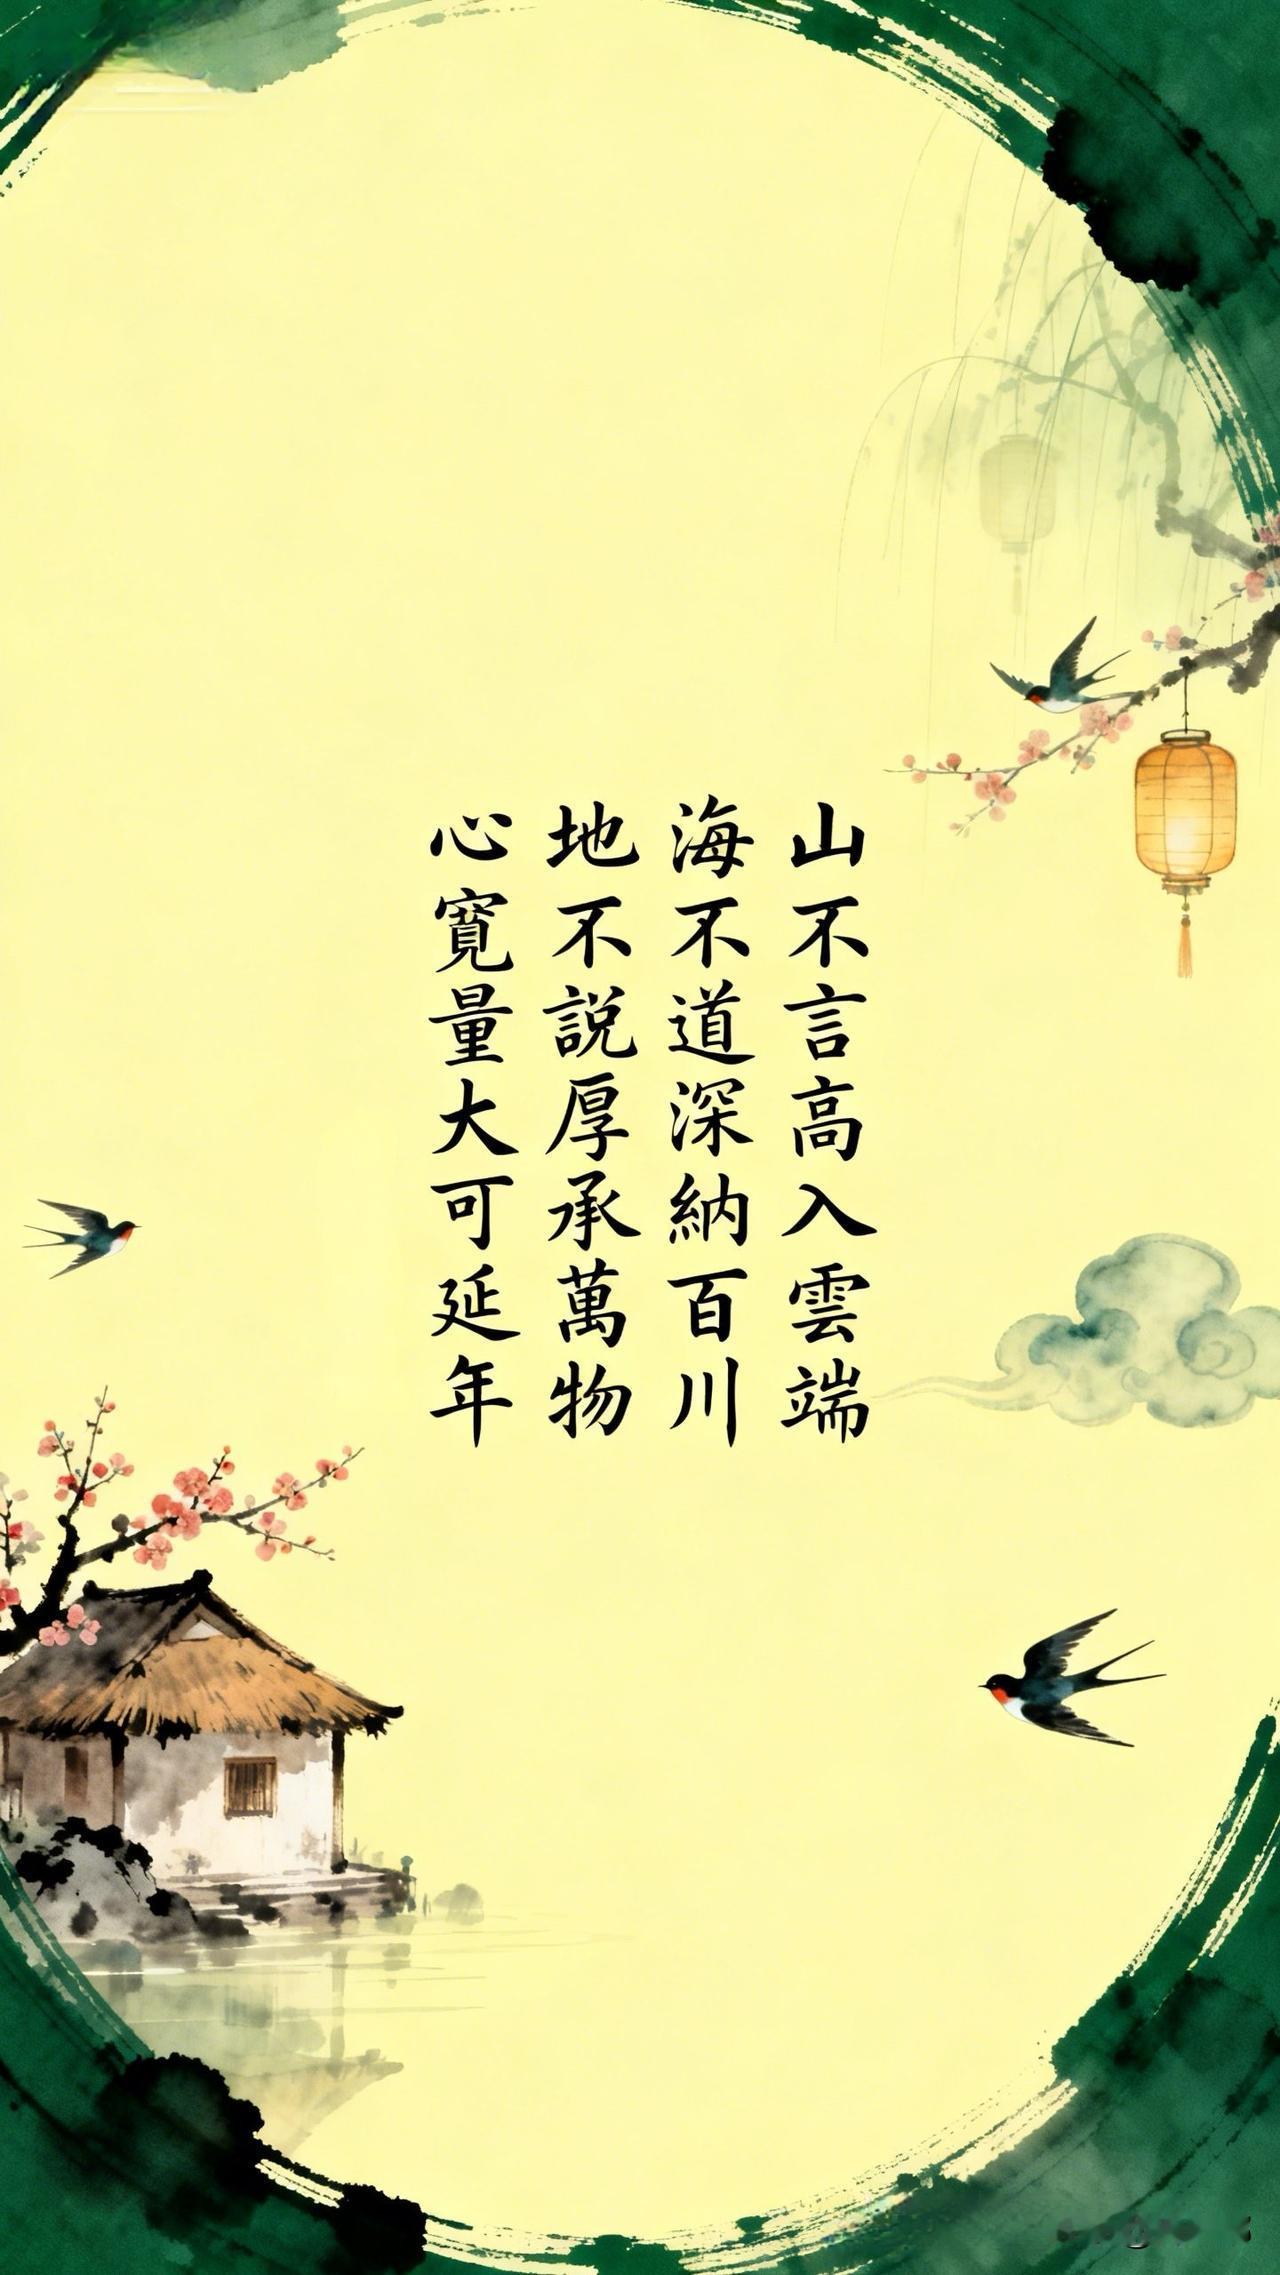 山不言高入雲端
海不道深納百川
地不説厚承萬物
心寬量大可延年